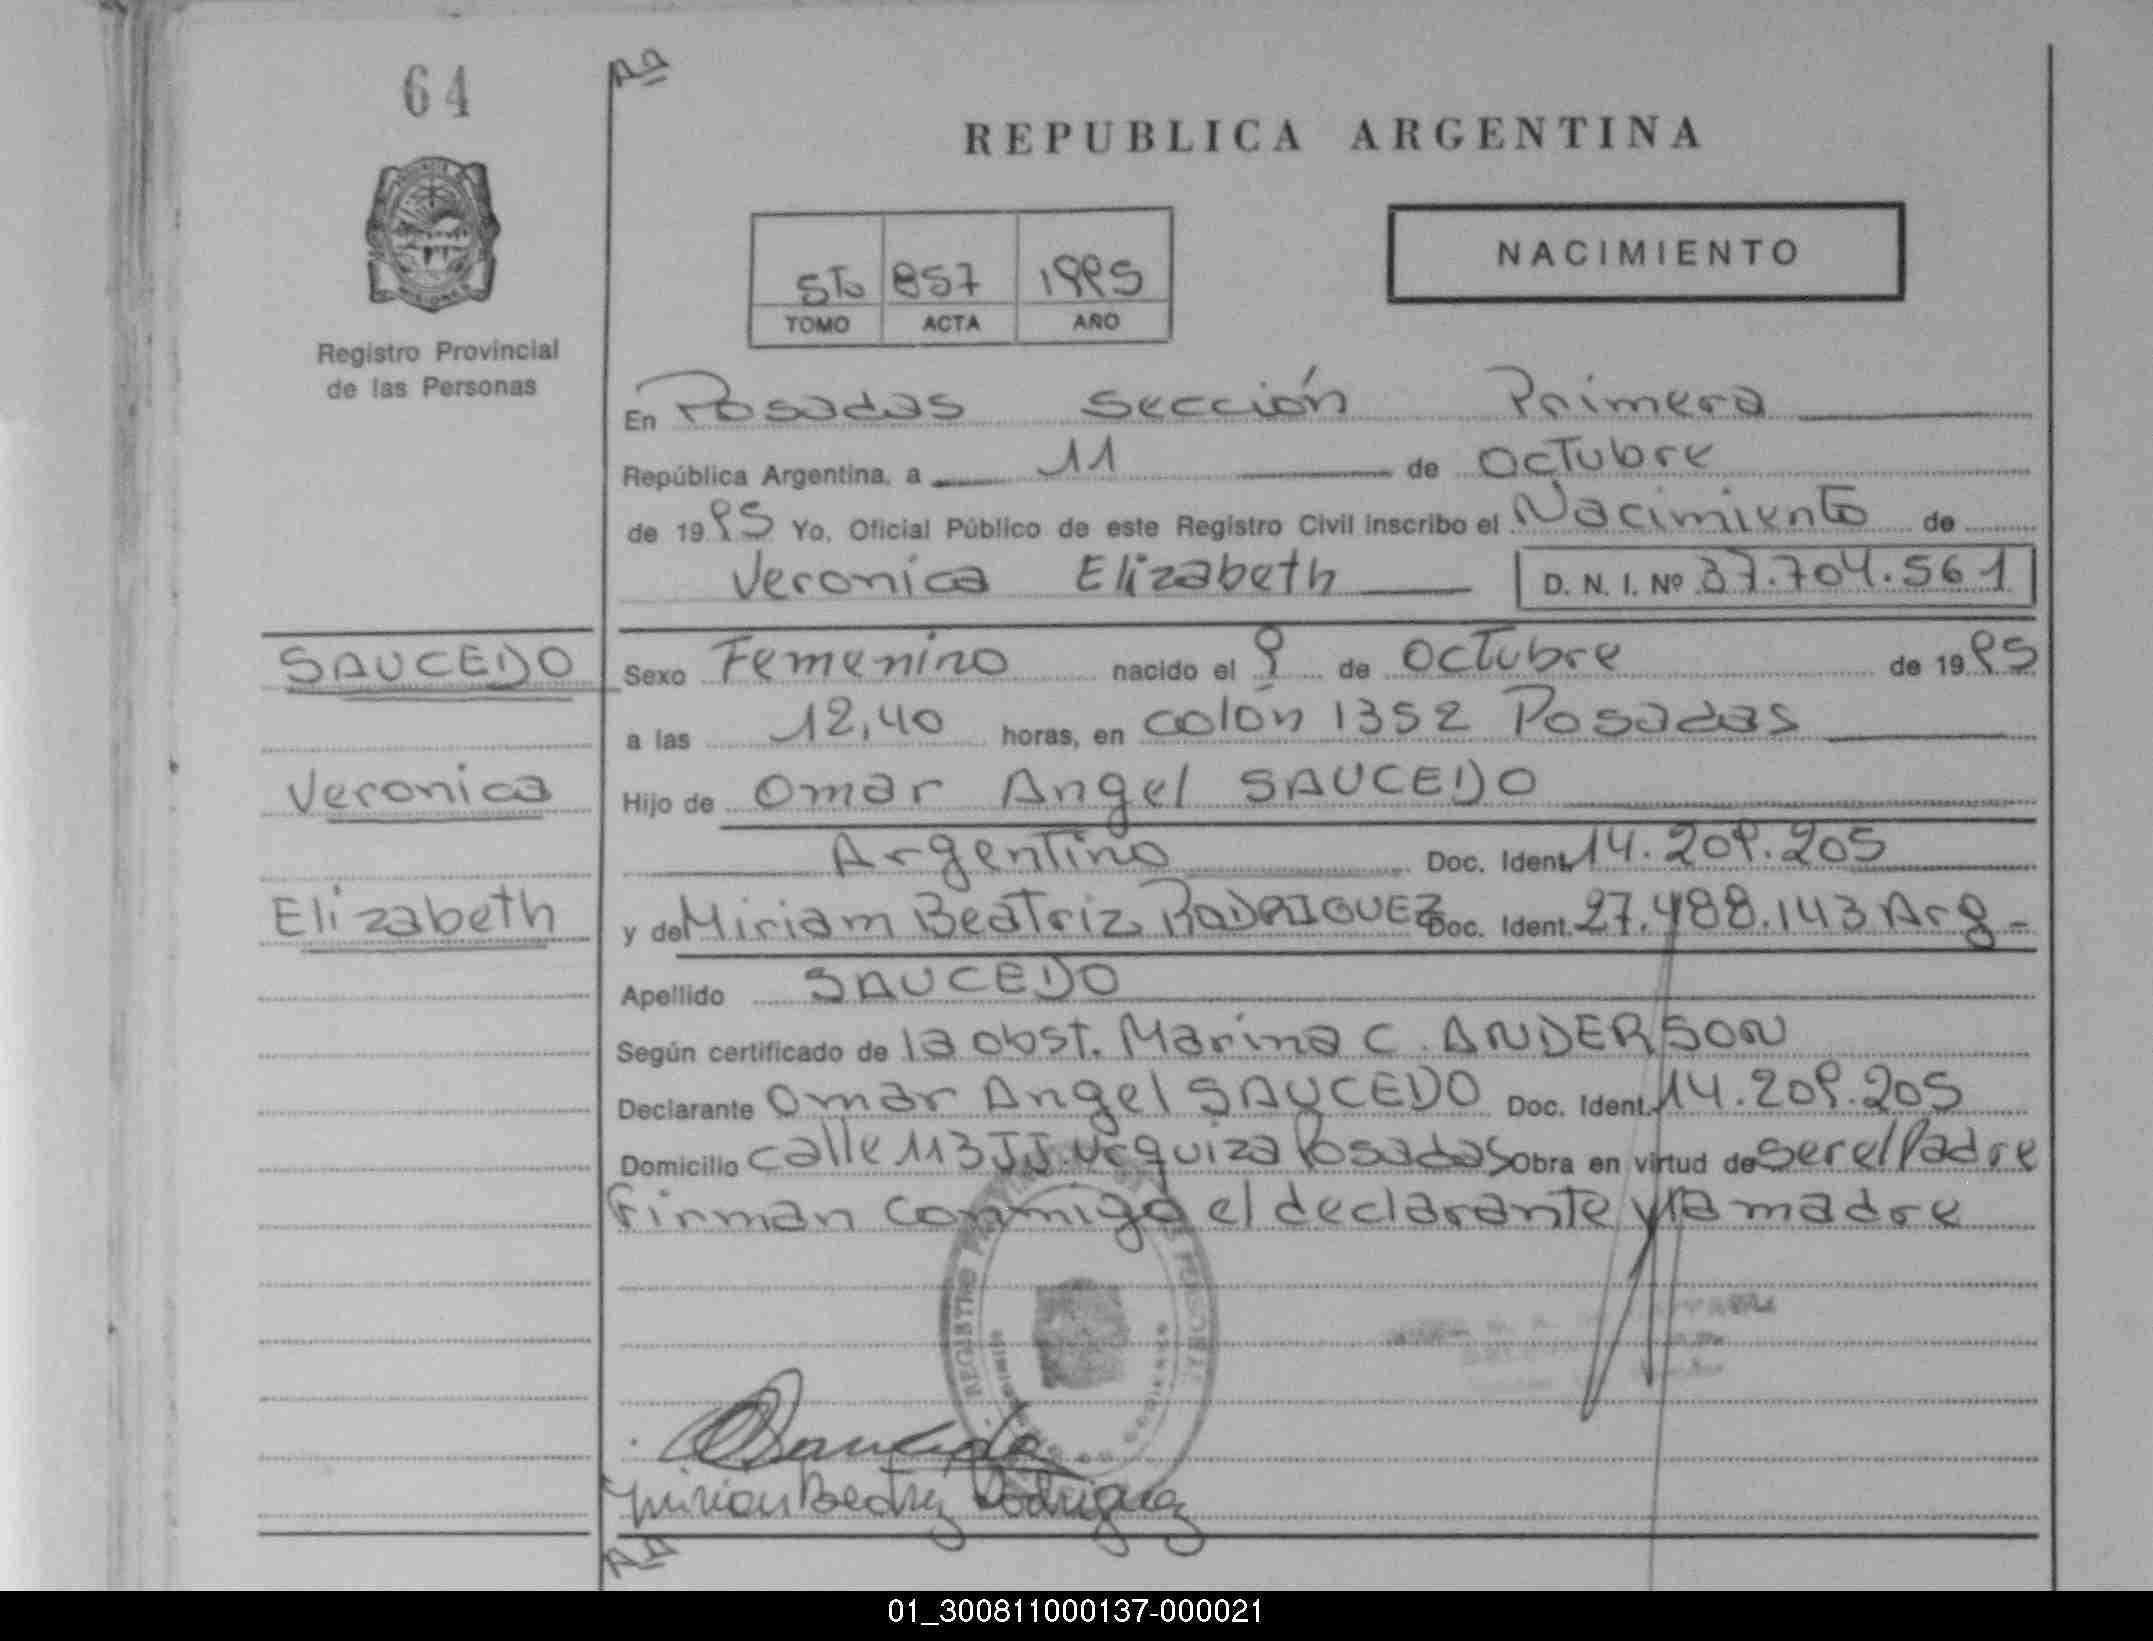 64
Aª
REPUBLICA ARGENTINA
NACIMIENTO
5to 857 1995
TOMO ACTA AÑO
MISIONES
Registro Provincial
de las Personas
En Posadas Sección Primera
República Argentina, a 11 de Octubre
de 1995 Yo, Oficial Público de este Registro Civil inscribo el Nacimiento de
Veronica Elizabeth D. N. I. Nº 37.704.561
SAUCEDO
Veronica
Elizabeth
Sexo Femenino nacido el 9 de Octubre de 1995
a las 12,40 horas, en colón 1352 Posadas
Hijo de Omar Angel SAUCEDO
Argentino Doc. Ident. 14.209.205
y de Miriam Beatriz RODRIGUEZ Doc. Ident. 27.488.143 Arg.-
Apellido SAUCEDO
Según certificado de la obst. Marina C. ANDERSON
Declarante Omar Angel SAUCEDO Doc. Ident. 14.209.205
Domicilio calle 113 JJ. Urquiza Posadas Obra en virtud de ser el Padre
Firman conmigo el declarante y la madre
REGISTRO
OSaucedo
Miriam Beatriz Rodriguez
Aª
01_300811000137-000021